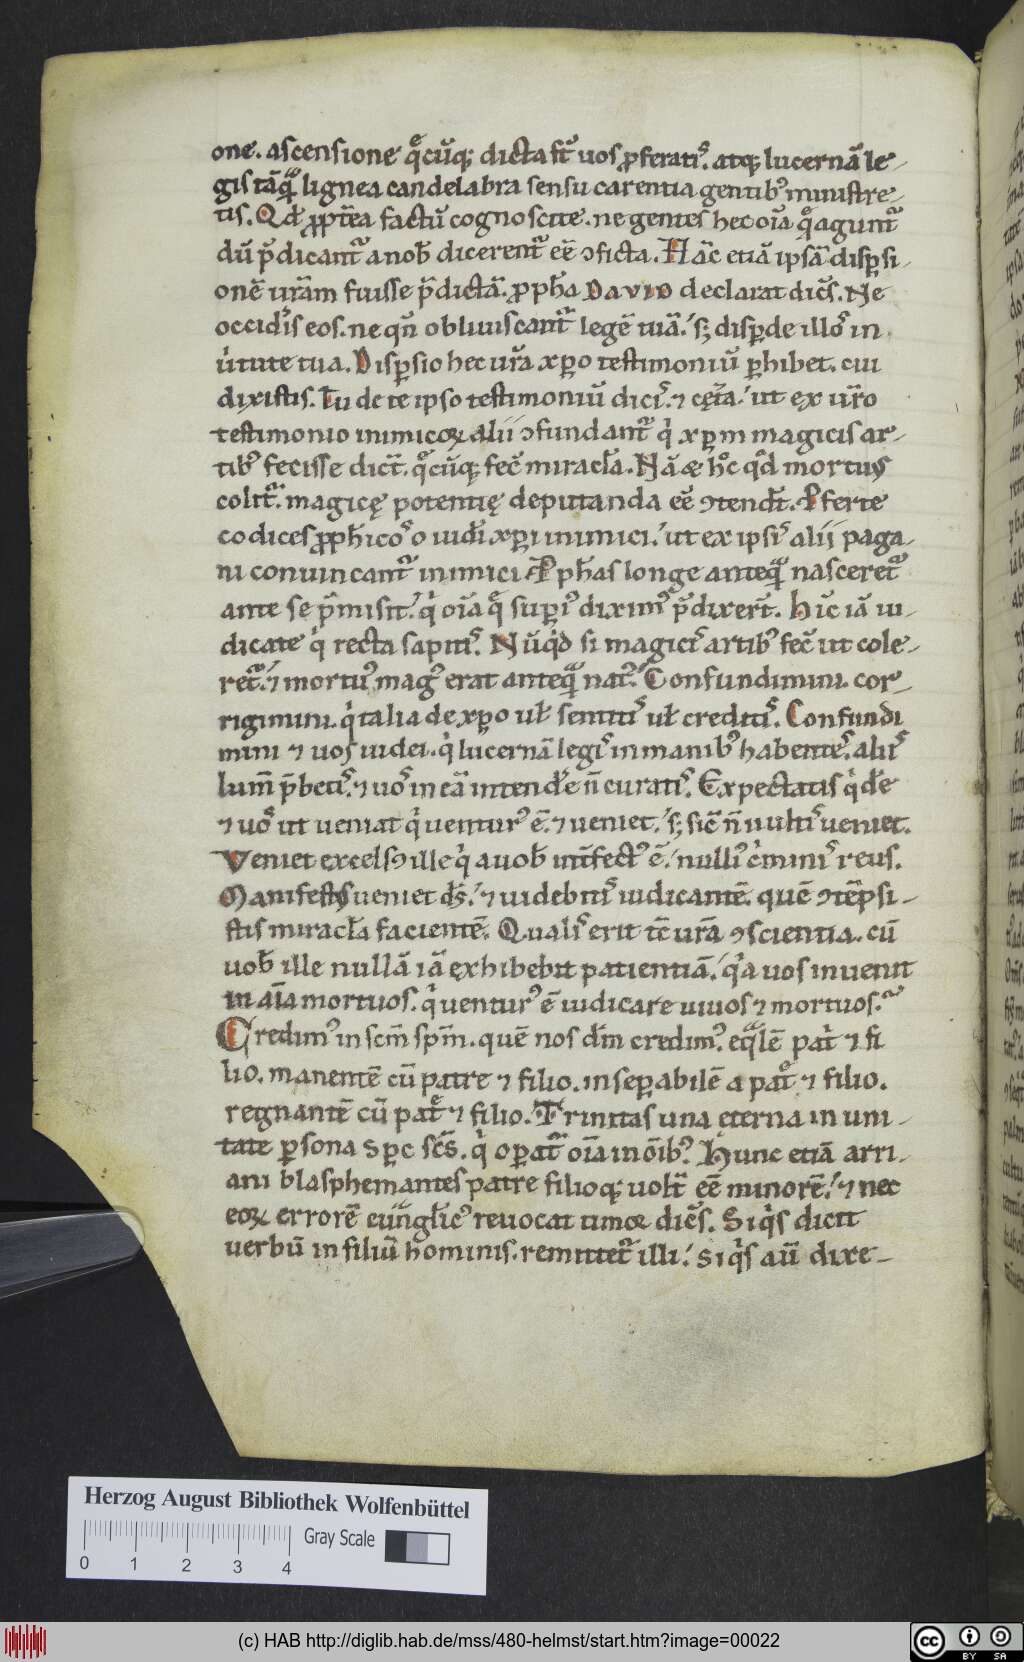 one. ascensione qͦcūq; dicta st̄ uos ꝓferatis. atq; lucernā le-
gis tāqᷓ lignea candelabra sensu carentia gentib᷒ ministre-
tis. Qd̄ ꝓpt̄ea factū cognoscite. ne gentes hec oīa q̄ agunt᷑
dū p̄dicant᷑ a nob̄ dicerent᷑ eē ↄficta. Hāc etiā ipsā disp̱si-
onē ur̄am fuisse p̄dictā. ꝓph̄a DAVID declarat dicēs. Ne
occid̓is eos. ne qn̄ obliuiscant᷑ legē tuā. s; disp̱de illos in
u̓tute tua. Disp̱sio hec ur̄a xp̄o testimoniū p̱hibet. cui
dixistis. Tu de te ipso testimoniū dicis. ⁊ cęt̄a. ut ex ur̄o
testimonio inimicoꝝ alii ↄfundant᷑ qi xp̄m magicis ar-
tib᷒ fecisse dict̄. qͦcūq; fec̄ miracl̄a. Nā & hͦc qd̄ mortuus
colit᷑. magicę potentię deputanda eē ↄtend̄t. Pferte
codices ꝓph̄icos o iud̄i xp̄i inimici. ut ex ipsis alii paga-
ni conuincant᷑ inimici. Pph̄as longe anteqᷓ nasceret᷑
ante se p̄misit. qi oīa q̄ sup̱i᷒ dixim᷒ p̄dixer̄t. Huc iā iu-
dicate qi recta sapitis. Nūqd̄ si magicis artib᷒ fec̄ ut cole-
ret᷑. ⁊ mortu᷒ mag᷒ erat anteqᷓ nat᷒. Confundimini. cor-
rigimini. qi talia de xp̄o ul̄ sentitis ul̄ creditis. Confundi
mini ⁊ uos iudei. qi lucernā legis in manib᷒ habentes. aliis
lum̄ p̄betis. ⁊ uos in eā intend̄e n̄ curatis. Expectatis qid̄e
⁊ uos ut ueniat qi uentur᷒ ē. ⁊ ueniet. s; sic̄ n̄ uultis ueniet.
Veniet excelsus ille qi a uob̄ int̄fect᷒ ē. nulli᷒ c̓minis reus.
Manifestus ueniet ds̄. ⁊ uidebitis iudicantē. quē ↄtēpsi-
stis miracl̄a facientē. Qualis erit tc̄ ur̄a ↄscientia. cū
uob̄ ille nullā iā exhibebit patientiā. qia uos inuenit
in aīa mortuos. qi uentur᷒ ē iudicare uiuos ⁊ mortuos.
Credim᷒ in scm̄ spm̄. quē nos dm̄ credim᷒. eqᷓlē pat̓ ⁊ fi
lio. manentē cū patre ⁊ filio. insep̱abilē a pat̓ ⁊ filio.
regnantē cū pat̓ ⁊ filio. Trinitas una eterna in uni-
tate p̱sona spc sc̄s. qi op̱at᷑ oīa in oīb᷒. Hunc etiā arri-
ani blasphemantes patre filioq; uolt̄ eē minorē. ⁊ nec
eoꝝ errorē eungl̄ic᷒ reuocat timor dicēs. Si qis dicit
uerbū in filiū hominis. remittet᷑ illi. Si qis aū dixe-
Herzog August Bibliothek Wolfenbüttel
Gray Scale
0 1 2 3 4
(c) HAB http://diglib.hab.de/mss/480-helmst/start.htm?image=00022
cc BY SA